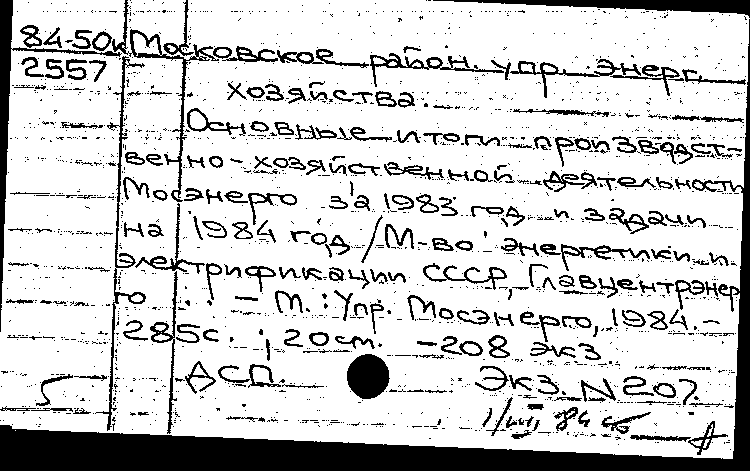 84-50к Московское район. упр. энерг.
2557 хозяйства.
Основные итоги производст-
венно-хозяйственной деятельности
Мосэнерго за 1983 год и задачи
на 1984 год / М-во энергетики и
электрификации СССР, Главцентрэнер
го . . . – М. : Упр. Мосэнерго, 1984. –
285с. ; 20см. – 208 экз.
ДСП. Экз. N 207.
84